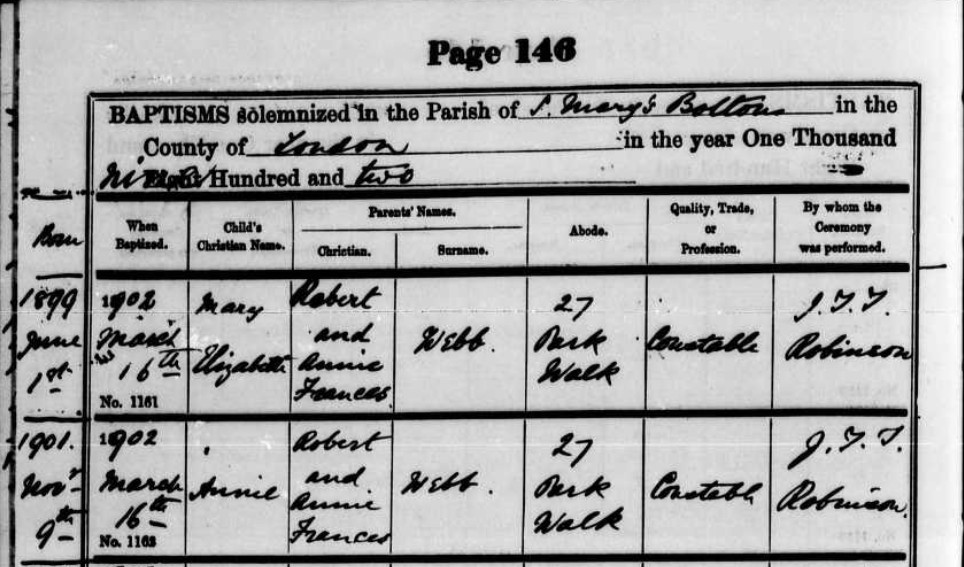 Page 146
BAPTISMS solemnized in the Parish of S. Mary's Boltons in the
County of London in the year One Thousand
Nine Hundred and two
Born
When Baptized.
Child's Christian Name.
Parents' Names.
Christian.
Surname.
Abode.
Quality, Trade, or Profession.
By whom the Ceremony was performed.
1899 June 1st
1902 March 16th
No. 1161
Mary Elizabeth
Robert and Annie Frances
Webb
27 Park Walk
Constable
J. T. T. Robinson
1901. Novr 9th
1902 March 16th
No. 1162
Annie
Robert and Annie Frances
Webb.
27 Park Walk
Constable
J. T. T. Robinson